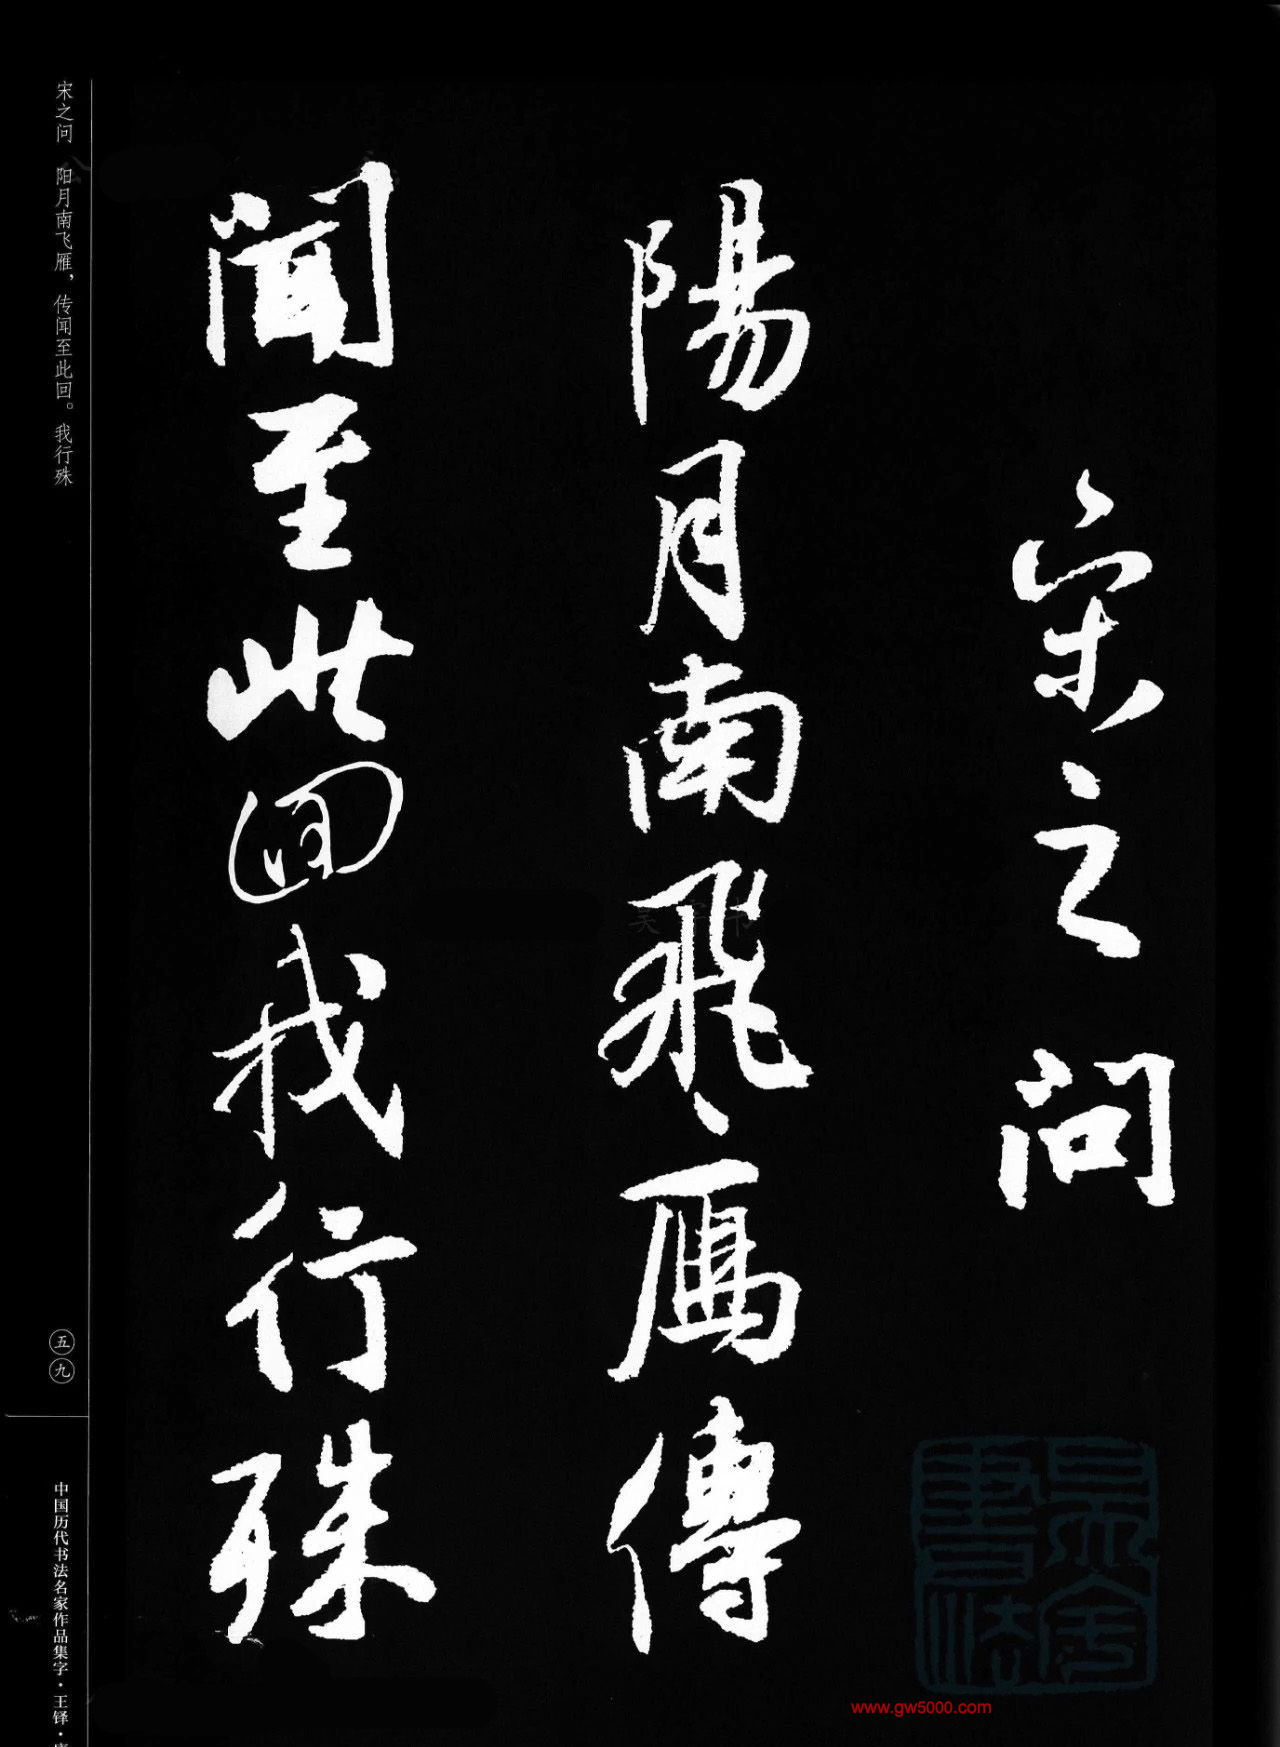 宋之问
陽月南飛雁傳
聞至此回我行殊
宋之问 阳月南飞雁，传闻至此回。我行殊
五九
中国历代书法名家作品集字·王铎·
www.gw5000.com